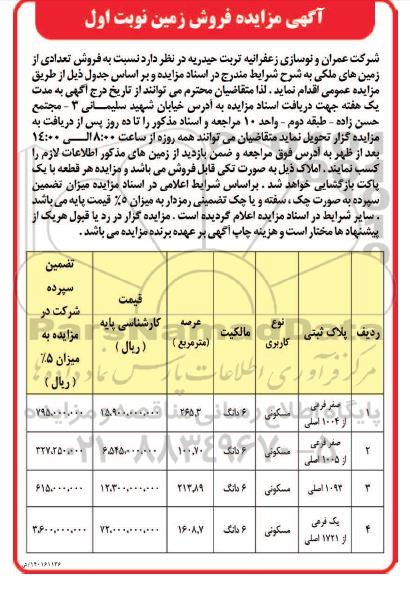 آگهی مزایده فروش زمین نوبت اول
شرکت عمران و نوسازی زعفرانیه تربت حیدریه در نظر دارد نسبت به فروش تعدادی از
زمین های ملکی به شرح شرایط مندرج در اسناد مزایده و بر اساس جدول ذیل از طریق
مزایده عمومی اقدام نماید . لذا متقاضیان محترم می توانند از تاریخ درج آگهی به مدت
یک هفته جهت دریافت اسناد مزایده به آدرس خیابان شهید سلیمانی ۳ - مجتمع
حسن زاده - طبقه دوم - واحد ۱۰ مراجعه و اسناد مذکور را تا ده روز پس از دریافت به
مزایده گزار تحویل نماید متقاضیان می توانند همه روزه از ساعت ۸:۰۰ الی ۱۴:۰۰
بعد از ظهر به آدرس فوق مراجعه و ضمن بازدید از زمین های مذکور اطلاعات لازم را
کسب نمایند . املاک ذیل به صورت تکی قابل فروش می باشد و مزایده هر قطعه با یک
پاکت بازگشایی خواهد شد . براساس شرایط اعلامی در اسناد مزایده میزان تضمین
سپرده به صورت چک ، سفته و یا چک تضمینی رمزدار به میزان ۵٪ قیمت پایه می باشد
. سایر شرایط در اسناد مزایده اعلام گردیده است . مزایده گزار در رد یا قبول هریک از
پیشنهاد ها مختار است و هزینه چاپ آگهی بر عهده برنده مزایده می باشد .
ردیف پلاک ثبتی نوع کاربری مالکیت عرصه (مترمربع) قیمت کارشناسی پایه (ریال) تضمین سپرده شرکت در مزایده به میزان ۵٪ (ریال)
۱ صفر فرعی از ۱۰۰۴ اصلی مسکونی ۶ دانگ ۲۶۵،۳ ۱۵،۹۰۰،۰۰۰،۰۰۰ ۷۹۵،۰۰۰،۰۰۰
۲ صفر فرعی از ۱۰۰۵ اصلی مسکونی ۶ دانگ ۱۰۰،۷۰ ۶،۵۴۵،۰۰۰،۰۰۰ ۳۲۷،۲۵۰،۰۰۰
۳ ۱۰۹۳ اصلی مسکونی ۶ دانگ ۲۱۳،۸۹ ۱۲،۳۰۰،۰۰۰،۰۰۰ ۶۱۵،۰۰۰،۰۰۰
۴ یک فرعی از ۱۷۲۱ اصلی مسکونی ۶ دانگ ۱۶۰۸،۷ ۷۲،۰۰۰،۰۰۰،۰۰۰ ۳،۶۰۰،۰۰۰،۰۰۰
۱۴۰۱۶۱۱۳۶/م